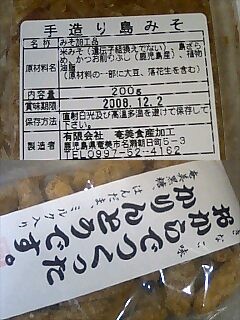 手造り島みそ
名称 みそ加工品
原材料名 米みそ(遺伝子組換えでない)、島ざらめ、かつお削りぶし(鹿児島産)、植物油脂
(原材料の一部に大豆、落花生を含む)
内容量 200g
賞味期限 2008.12.2
保存方法 直射日光及び高温多湿を避けて保存して下さい。
製造者 有限会社 奄美食産加工
鹿児島県奄美市名瀬朝日町5-3
TEL0997-52-4162
きなこ味
おからでつくった
かりんとうです。
奄美黒糖、はんだま、ミルク入り